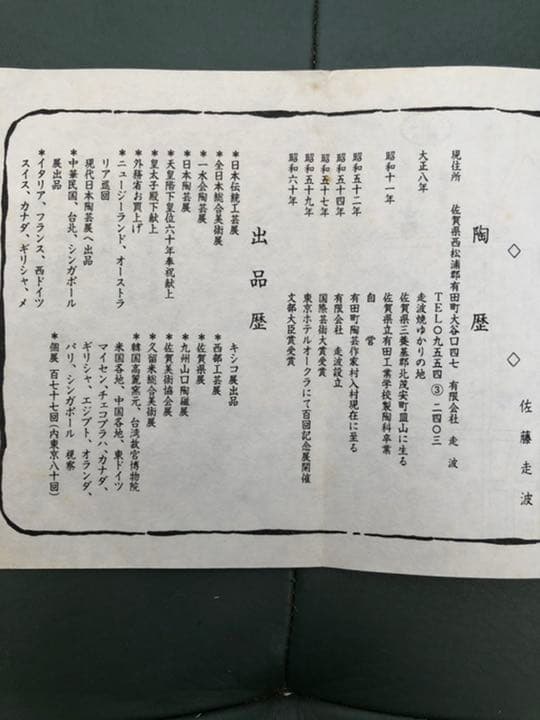 ◇ ◇ 佐藤走波
陶歴
現住所 佐賀県西松浦郡有田町大谷口四七 有限会社 走波
TEL〇九五五四③二四〇三
大正八年 走波焼ゆかりの地
佐賀県三養基郡北茂安町皿山に生る
昭和十一年 佐賀県立有田工業学校製陶科卒業
自営
昭和五十二年 有田町陶芸作家村入村現在に至る
昭和五十四年 有限会社 走波設立
昭和五十七年 国際芸術大賞受賞
昭和五十九年 東京ホテルオークラにて百回記念展開催
昭和六十年 文部大臣賞受賞
出品歴
*日本伝統工芸展
*全日本総合美術展
*一水会陶芸展
*日本陶芸展
*天皇陛下皇位六十年奉祝献上
*皇太子殿下献上
*外務省お買上げ
*ニュージーランド、オーストラ
リア巡回
現代日本陶芸展へ出品
*中華民国、台北、シンガポール
展出品
*イタリア、フランス、西ドイツ
スイス、カナダ、ギリシャ、メ
キシコ展出品
*西部工芸展
*佐賀県展
*九州山口陶磁展
*佐賀美術協会展
*久留米総合美術展
*韓国高麗窯元、台湾故宮博物院
米国各地、中国各地、東ドイツ
マイセン、チェコプラハ、カナダ、
ギリシャ、エジプト、オランダ、
パリ、シシンガポール 視察
*個展 百七十七回(内東京八十回)